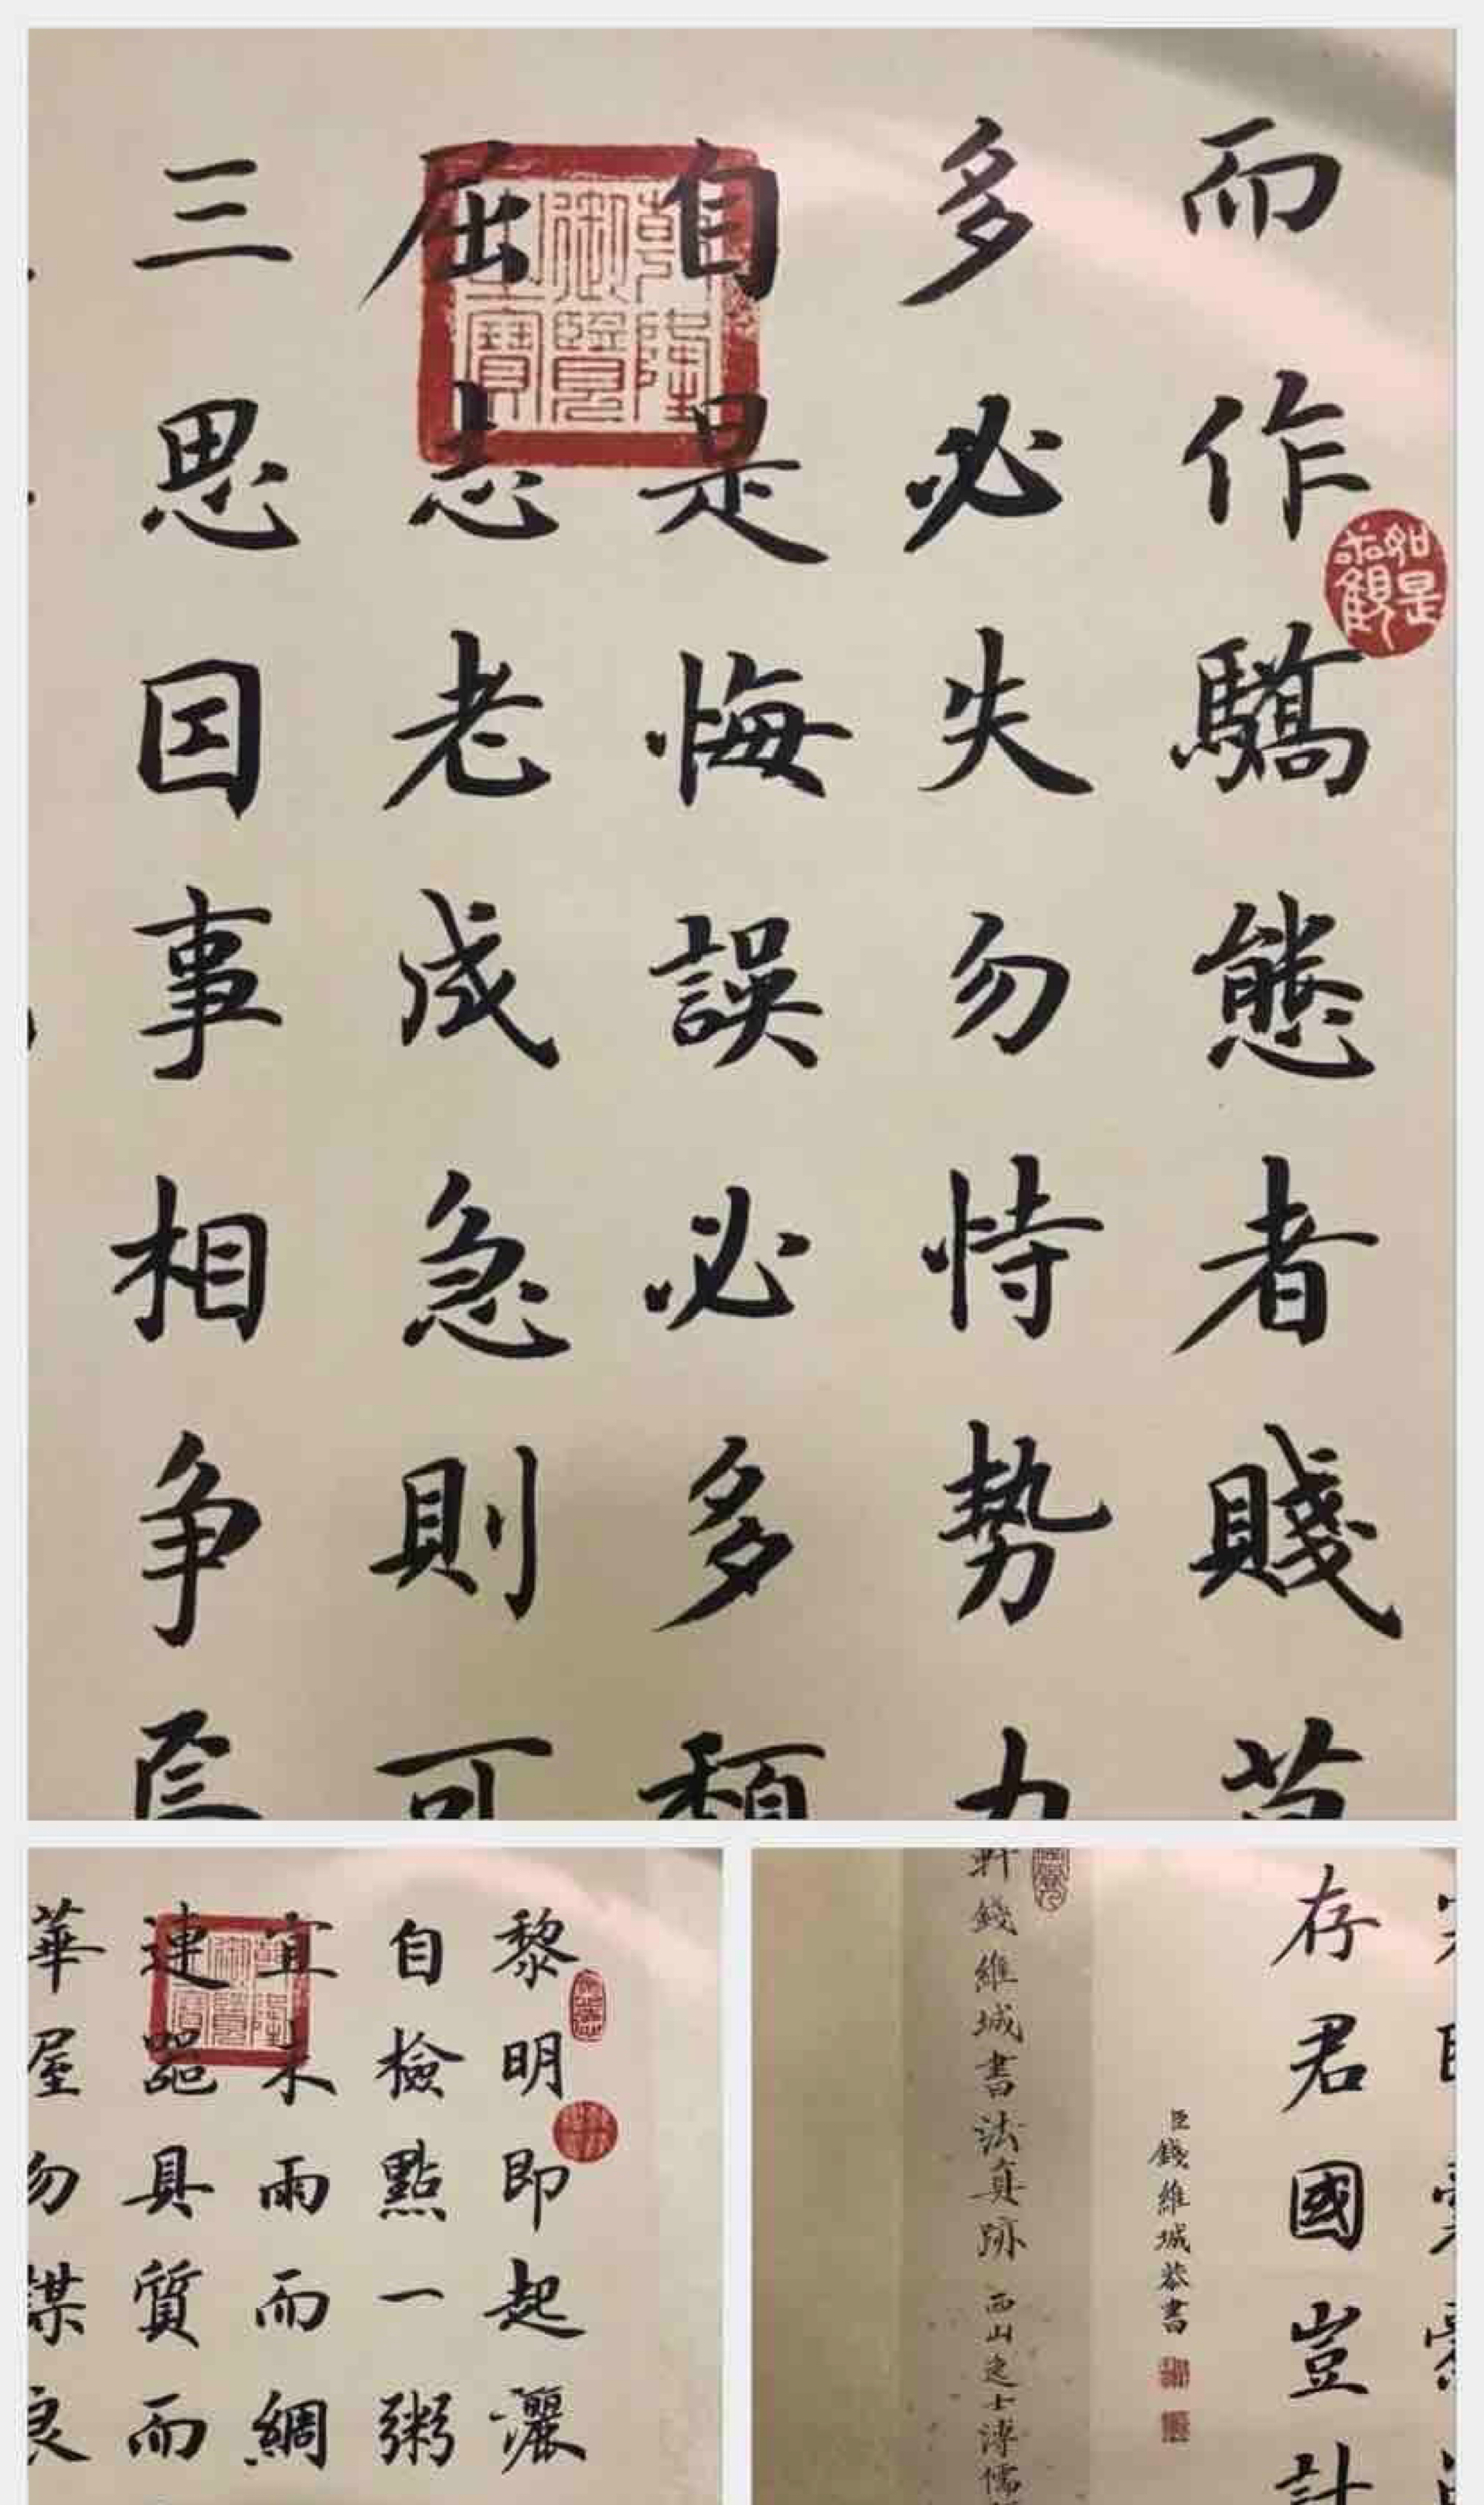 而作驕態者賤
多必失勿恃势力
自是悔誤必多頽
屈志老成急則可
三思因事相争
乾隆御覽之寶
如是我觀
黎明即起灑
自檢點一粥
宜未雨而綢
連器具質而
華屋勿謀良
乾隆御覽之寶
存君國豈計
臣錢維城恭書
軒錢維城書法真跡 西山逸士溥儒